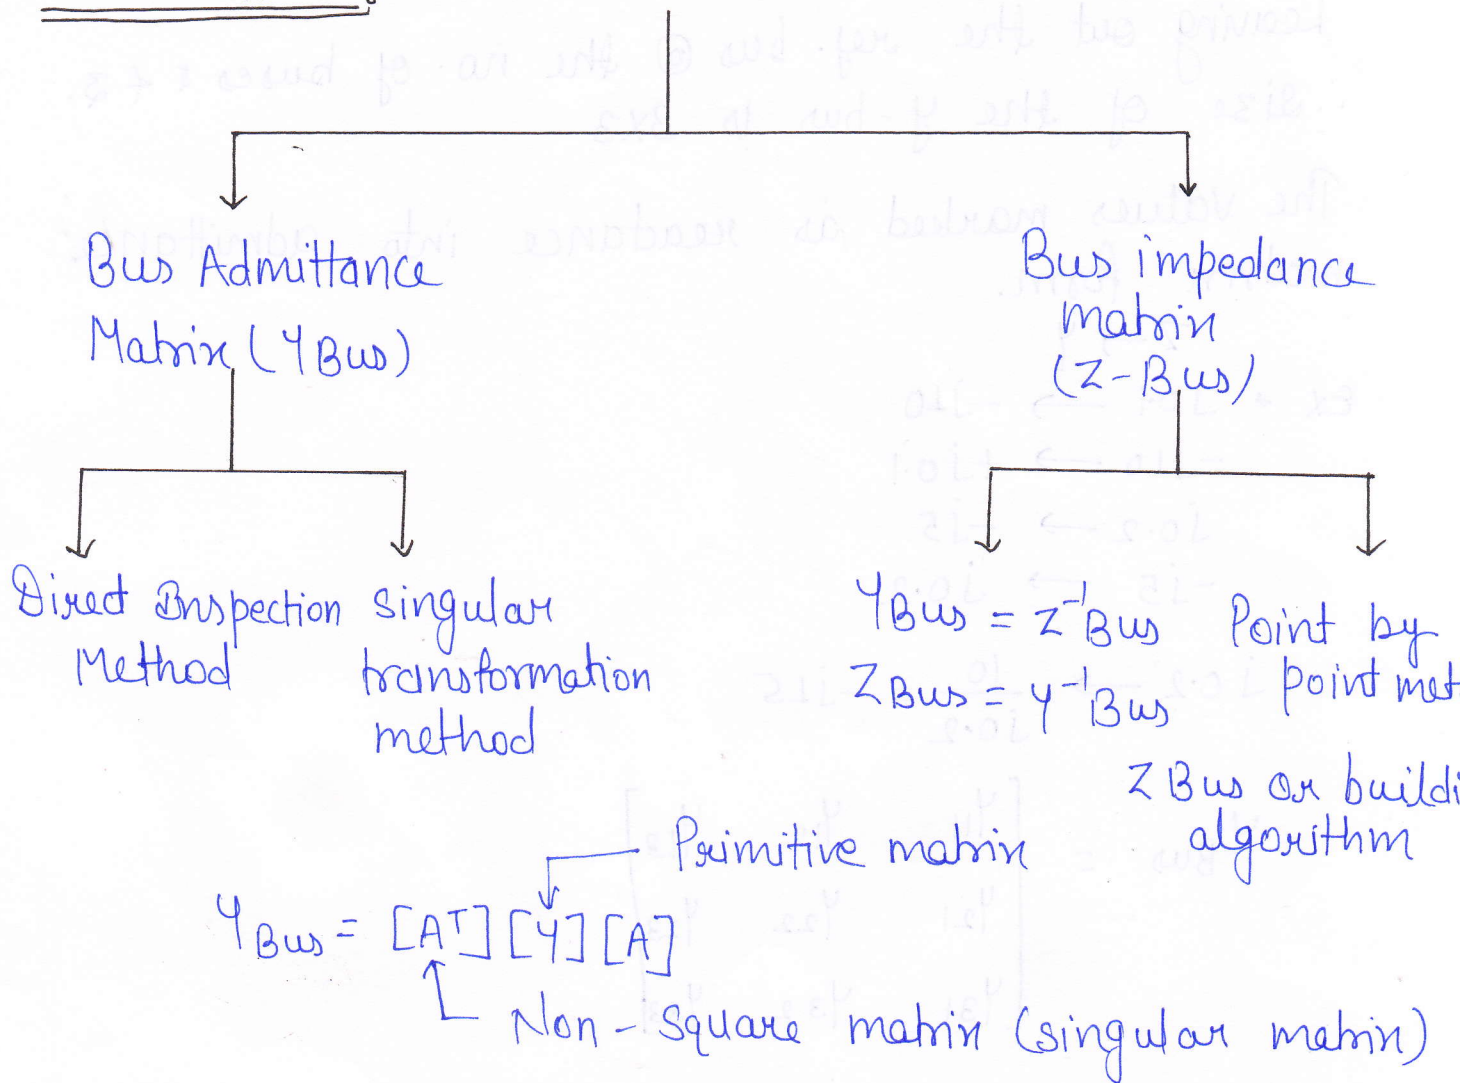 Bus Admittance
Matrix (YBus)
Bus impedance
matrix
(Z-Bus)
Direct Inspection
Method
singular
transformation
method
YBus = Z⁻¹Bus
ZBus = Y⁻¹Bus
Point by
point met
Z Bus or buildi
algorithm
Primitive matrix
YBus = [Aᵀ] [Y] [A]
Non-square matrix (singular matrix)